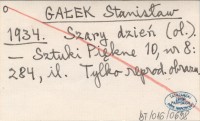 o GAŁEK Stanisław
1934. Szary dzień (ol.).
— Sztuki Piękne 10, nr 8:
284, il. Tylko reprod. obrazu.
BT/016/0698